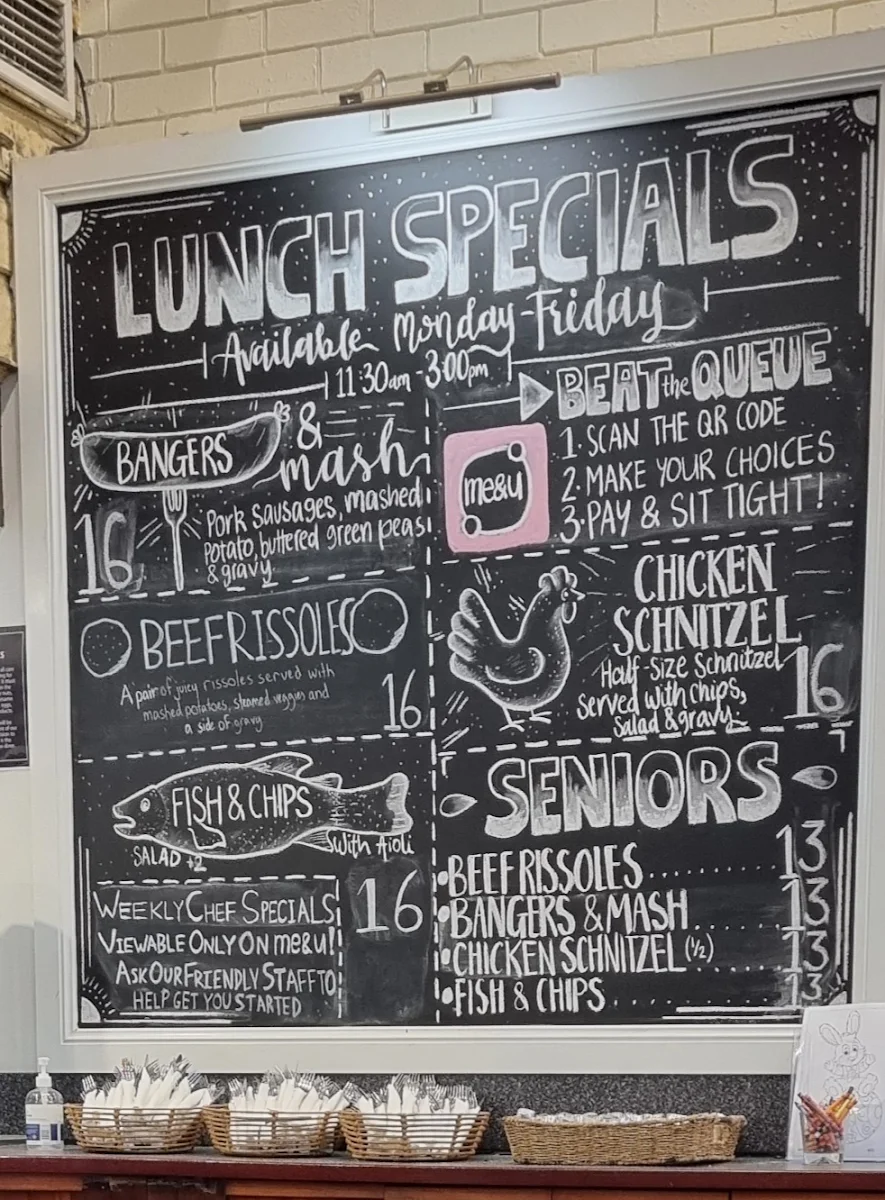 LUNCH SPECIALS
Available Monday-Friday
11:30am - 3:00pm
BANGERS
&
mash
16
Pork sausages, mashed
potato, buttered green peas
& gravy
BEEF RISSOLES
A pair of juicy rissoles served with
mashed potatoes, steamed veggies and
a side of gravy
16
FISH & CHIPS
with Aioli
SALAD +2
16
WEEKLY CHEF SPECIALS
VIEWABLE ONLY ON me&u!
ASK OUR FRIENDLY STAFF TO
HELP GET YOU STARTED
BEAT the QUEUE
me&u
1. SCAN THE QR CODE
2. MAKE YOUR CHOICES
3. PAY & SIT TIGHT!
CHICKEN
SCHNITZEL
Half-Size Schnitzel
Served with chips,
Salad & gravy
16
SENIORS
• BEEF RISSOLES ........ 13
• BANGERS & MASH ..... 13
• CHICKEN SCHNITZEL (1/2) .... 13
• FISH & CHIPS ........ 13